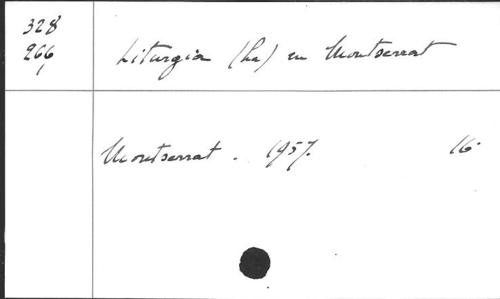 328
266
1
Liturgia (La) en Montserrat
Montserrat. 1957. 16º